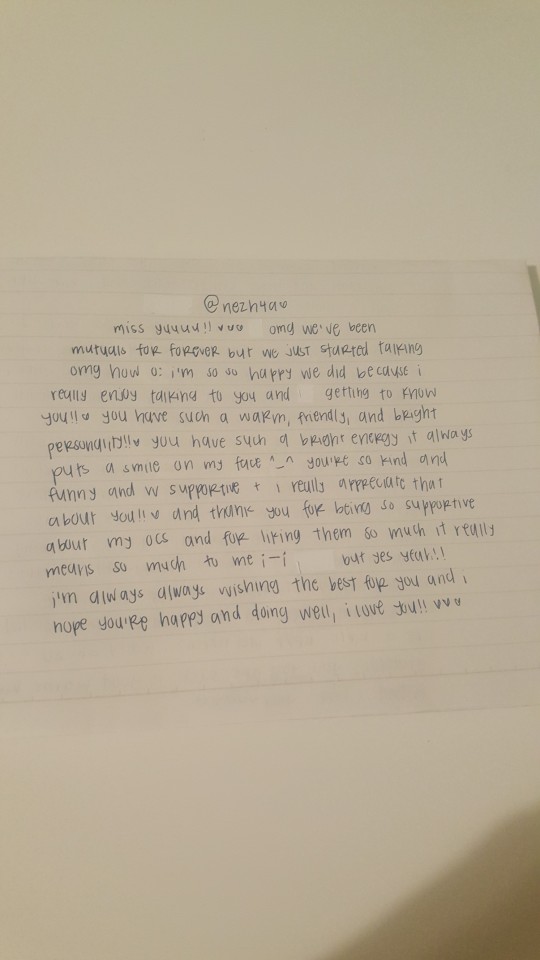 @nezh4a♡
miss yuuuu!! ♡♡♡ omg we've been
mutuals for forever but we just started talking
omg how o: i'm so so happy we did because i
really enjoy talking to you and getting to know
you!!♡ you have such a warm, friendly, and bright
personality!!♡ you have such a bright energy it always
puts a smile on my face ^_^ you're so kind and
funny and vv supportive + i really appreciate that
about you!!♡ and thank you for being so supportive
about my ocs and for liking them so much it really
means so much to me i-i but yes yeah!!
i'm always always wishing the best for you and i
hope you're happy and doing well, i love you!! ♡♡♡